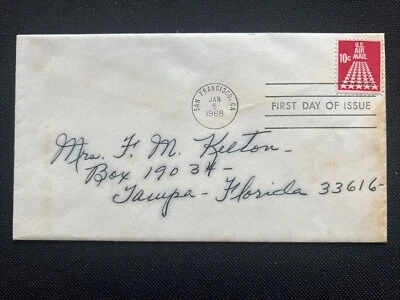 U.S.
AIR
MAIL
10c
SAN FRANCISCO, CA
JAN
5
1968
FIRST DAY OF ISSUE
Mrs. F. M. Kelton-
Box 19034-
Tampa-Florida 33616-